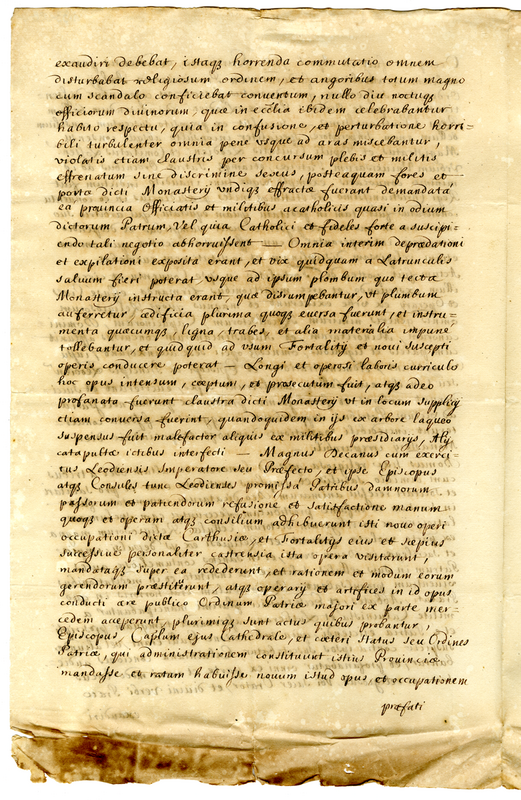 exaudiri debebat, istaqз horrenda commutatio omnem
disturbabat religiosum ordinem, et angoribus totum magno
cum scandalo conficiebat conventum, nullo diu noctuqз
officiorum divinorum, quæ in ecclia ibidem celebrabantur
habito respectu, quia in confusione, et perturbatione horri=
bili turbulenter omnia pene vsque ad aras miscebantur,
violatis etiam claustris per concursum plebis et militis
effrenatum sine discrimine sexus, posteaquam fores et
porta dicti Monasterij vndiqз effractæ fuerant demandata
ea provincia Officiatis et militibus acatholicis quasi in odium
dictorum Patrum, Vel quia Catholici et fideles forte a suscipi=
endo tali negotio abhorruissent — Omnia interim depradationi
et expilationi exposita erant, et vix quidquam a Latrunculis
salvum fieri poterat vsque ad ipsum plombum quo tecta
Monasterij instructa erant, quæ disrumpebantur, vt plumbum
auferretur, ædificia plurima quoqз eversa fuerunt, et instru=
menta quæcumqз, ligna, trabes, et alia materialia impune
tollebantur, et quidquid ad vsum Fortalitij et novi suscepti
operis conducere poterat — Longi et operosi laboris curriculo
hoc opus intensum, cæptum, et prosecutum fuit, atqз adeo
profanata fuerunt claustra dicti Monasterij vt in locum supplicij
etiam conversa fuerint, quandoquidem in ijs ex arbore laqueo
suspensus fuit malefactor aliquis ex militibus præsidiarijs, Alij
catapultæ ictibus interfecti — Magnus Decanus cum exerci=
tus Leodiensis Imperatore seu Præfecto, et ipse Episcopus
atqз Consules tunc Leodienses promissa Patribus damnorum
passorum et patiendorum refusione et satisfactione manum
quoqз et operam atqз consilium adhibuerunt isti novo operi
occupationi dictæ Carthusiæ, et Fortalitijs eius et sæpius
successive personaliter castrensia ista opera visitarunt,
mandataqз super ea redederunt, et rationem et modum eorum
gerendorum præstiterunt, atqз operarij et artifices in id opus
conducti ære publico Ordinum Patriæ majori ex parte mer=
cedem acceperunt, plurimiqз sunt actus quibus probantur,
Episcopus, Caplum ejus Cathedrale, et cæteri Status seu Ordines
Patriæ, qui administrationem constituunt istius Provinciæ
mandasse et ratam habuisse novum istud opus, et occupationem
præfati